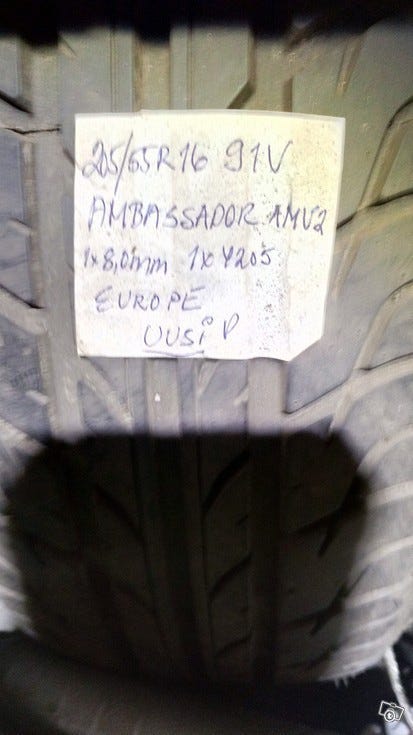 205/55R16 91V
AMBASSADOR AMV2
1x8,0mm 1x4205
EUROPE
UUSI P